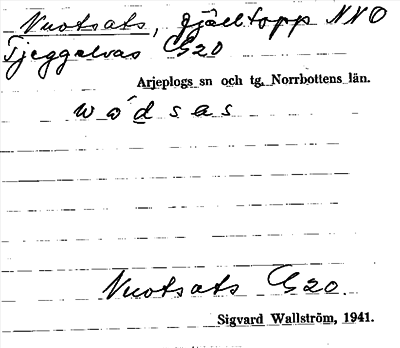 Vuotsats, fjälltopp NNO
Tjeggelvas C520
Arjeplogs sn och tg, Norrbottens län.
wo´dsas
Vuotsats C520.
Sigvard Wallström, 1941.